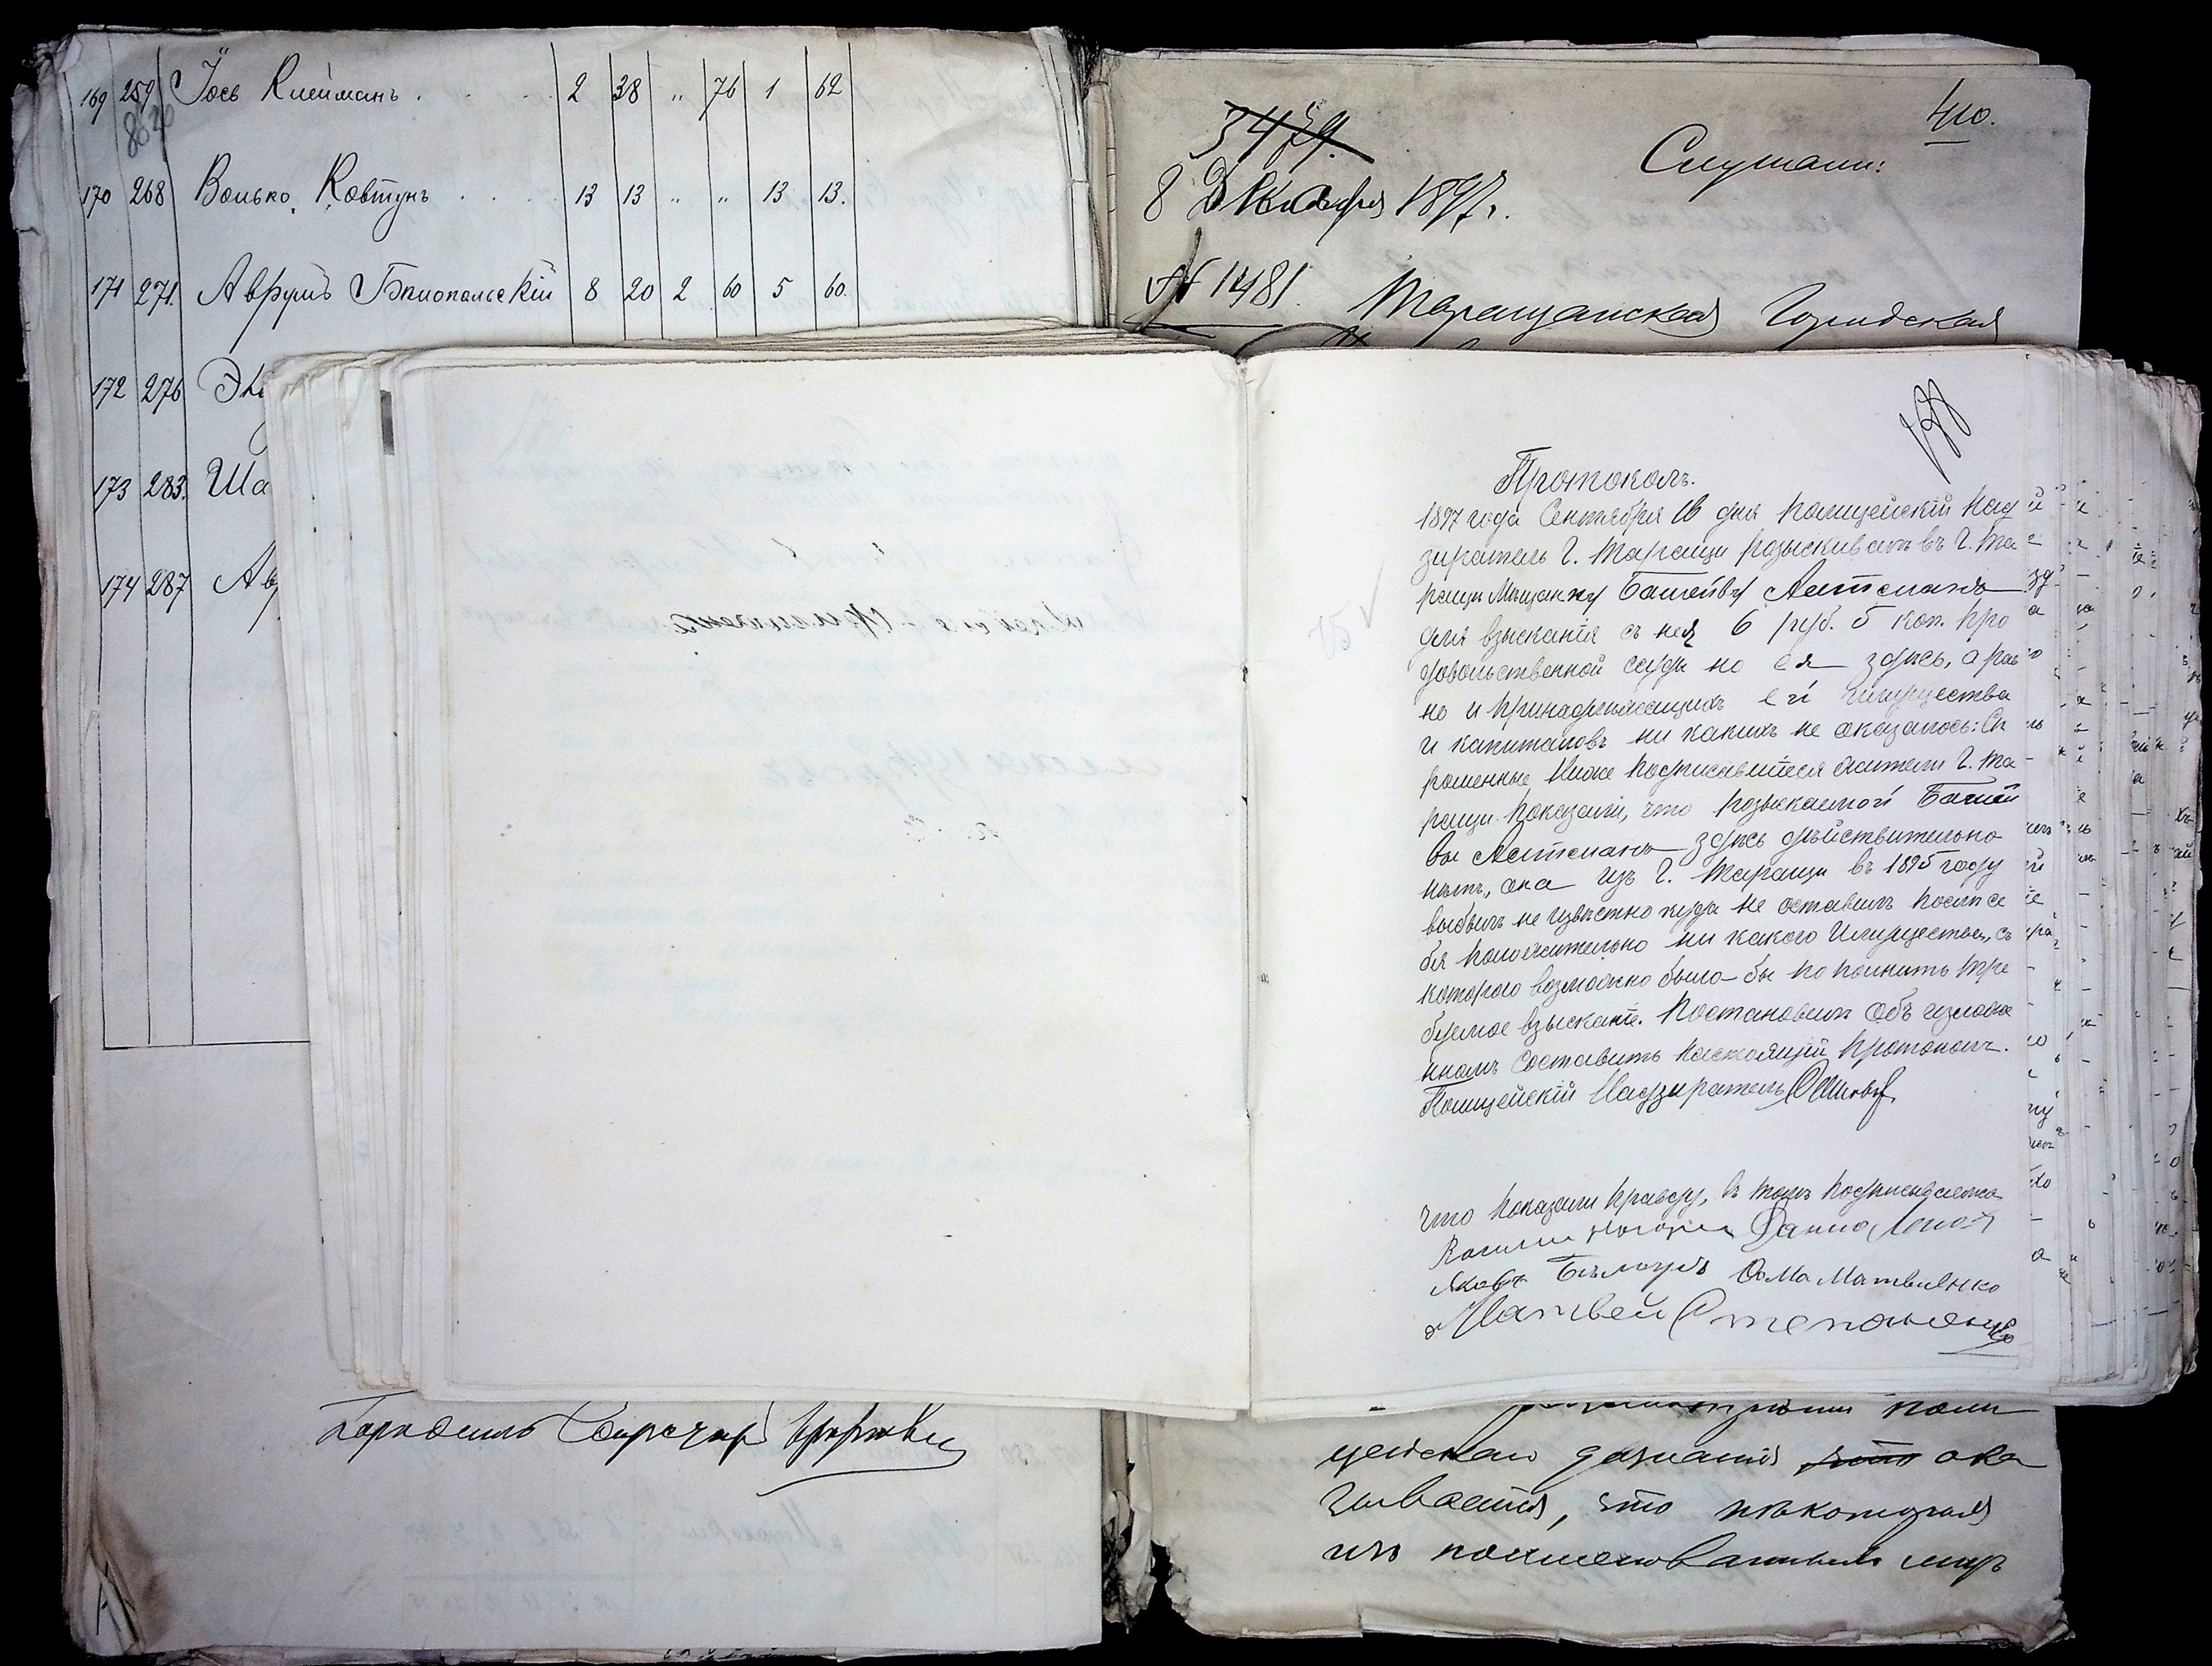 169 259 Іось Клейманъ . . . 2 38 " 76 1 62
170 268 Волько Ковтунъ . . . 13 13 " " 13 13.
171 271. Аврумъ Бялопольскій 8 20 2 60 5 60.
172 276
173 283. Ша
174 287 Ав
3479.
410.
Слушали:
8 Декабря 1897 г.
№ 1481.
Таращанская Городская
Протоколъ.
1897 года Сентября 16 дня Полицейскій Над
зиратель г. Таращи розыскивалъ въ г. Та
ращи Мѣщанку Башейву Лейтманъ
для взысканія съ нея 6 руб. 5 коп. про
довольственной ссуды но ея здѣсь, а рав
но и принадлежащихъ ей имущества
и капиталовъ ни какихъ не оказалось: Сп
рошенные Ниже подписавшіеся жители г. Та-
ращи показали, что розыскаемой Башей
вы Лейтманъ здѣсь дѣйствительно
нѣтъ, она изъ г. Таращи въ 1895 году
выбылъ не извѣстно куда не оставилъ послѣ се
бя положительно ни какого Имущества, съ
котораго возможно было-бы пополнить тре
буемое взысканіе. Постановилъ Объ изложе
нномъ Составить настоящій протоколъ.
Полицейскій Надзиратель
Что показали правду, въ томъ подписываемся
Данило
Яковъ Бѣлоусъ Фома Матвіенко
Матвей Степаненко
цейскаго дознанія что ока
зывается, что нѣкоторыя
изъ поименованныхъ лицъ